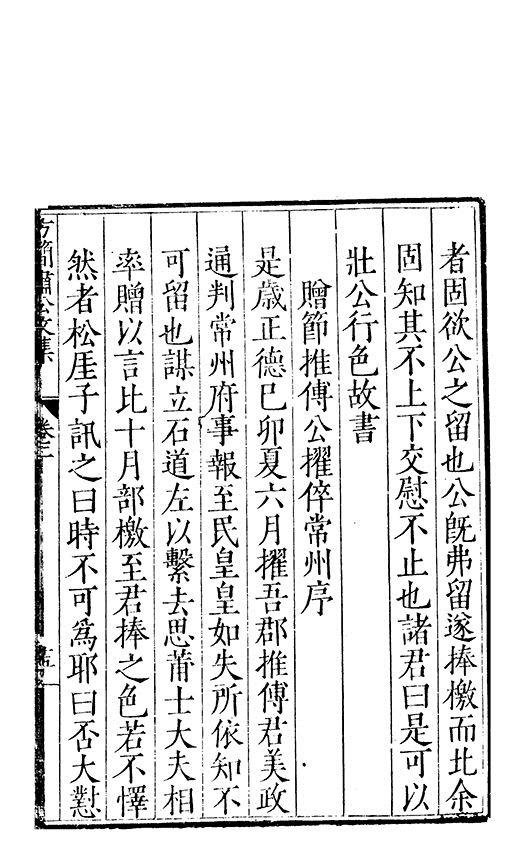 者固欲公之留也公旣弗留遂捧檄而北余
固知其不上下交慰不止也諸君曰是可以
壯公行色故書
贈節推傅公擢倅常州序
是歲正德巳卯夏六月擢吾郡推傅君美政
通判常州府事報至民皇皇如失所依知不
可留也謀立石道左以繫去思莆士大夫相
率贈以言比十月部檄至君捧之色若不懌
然者松厓子訊之曰時不可爲耶曰否大懟
方簡肅公文集
卷三